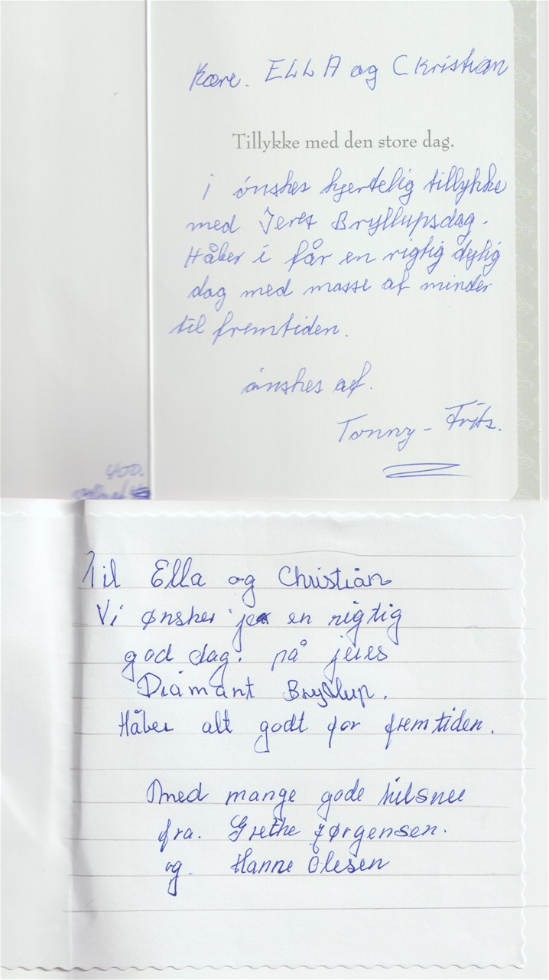 Kære. ELLA og Christian
Tillykke med den store dag.
i ønskes hjertelig tillykke
med Jeres Bryllupsdag.
Håber i får en rigtig dejlig
dag med masse af minder
til fremtiden.
ønskes af.
Tonny - Frits.
400.
Til Ella og Christian
Vi ønsker jer en rigtig
god dag. på jeres
Diamant Bryllup.
Håber alt godt for fremtiden.
Med mange gode hilsner
fra. Grethe Jørgensen.
og Hanne Olesen